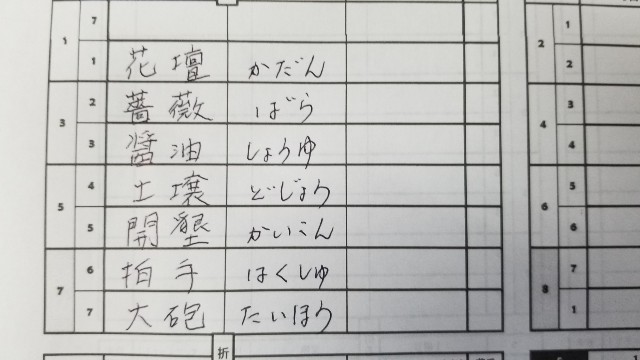 7
1
1 花壇 かだん
3
2 薔薇 ばら
3 醤油 しょうゆ
5
4 土壌 どじょう
5 開墾 かいこん
7
6 拍手 はくしゅ
7 大砲 たいほう
折
2
1
2
4
3
4
6
5
6
8
7
1